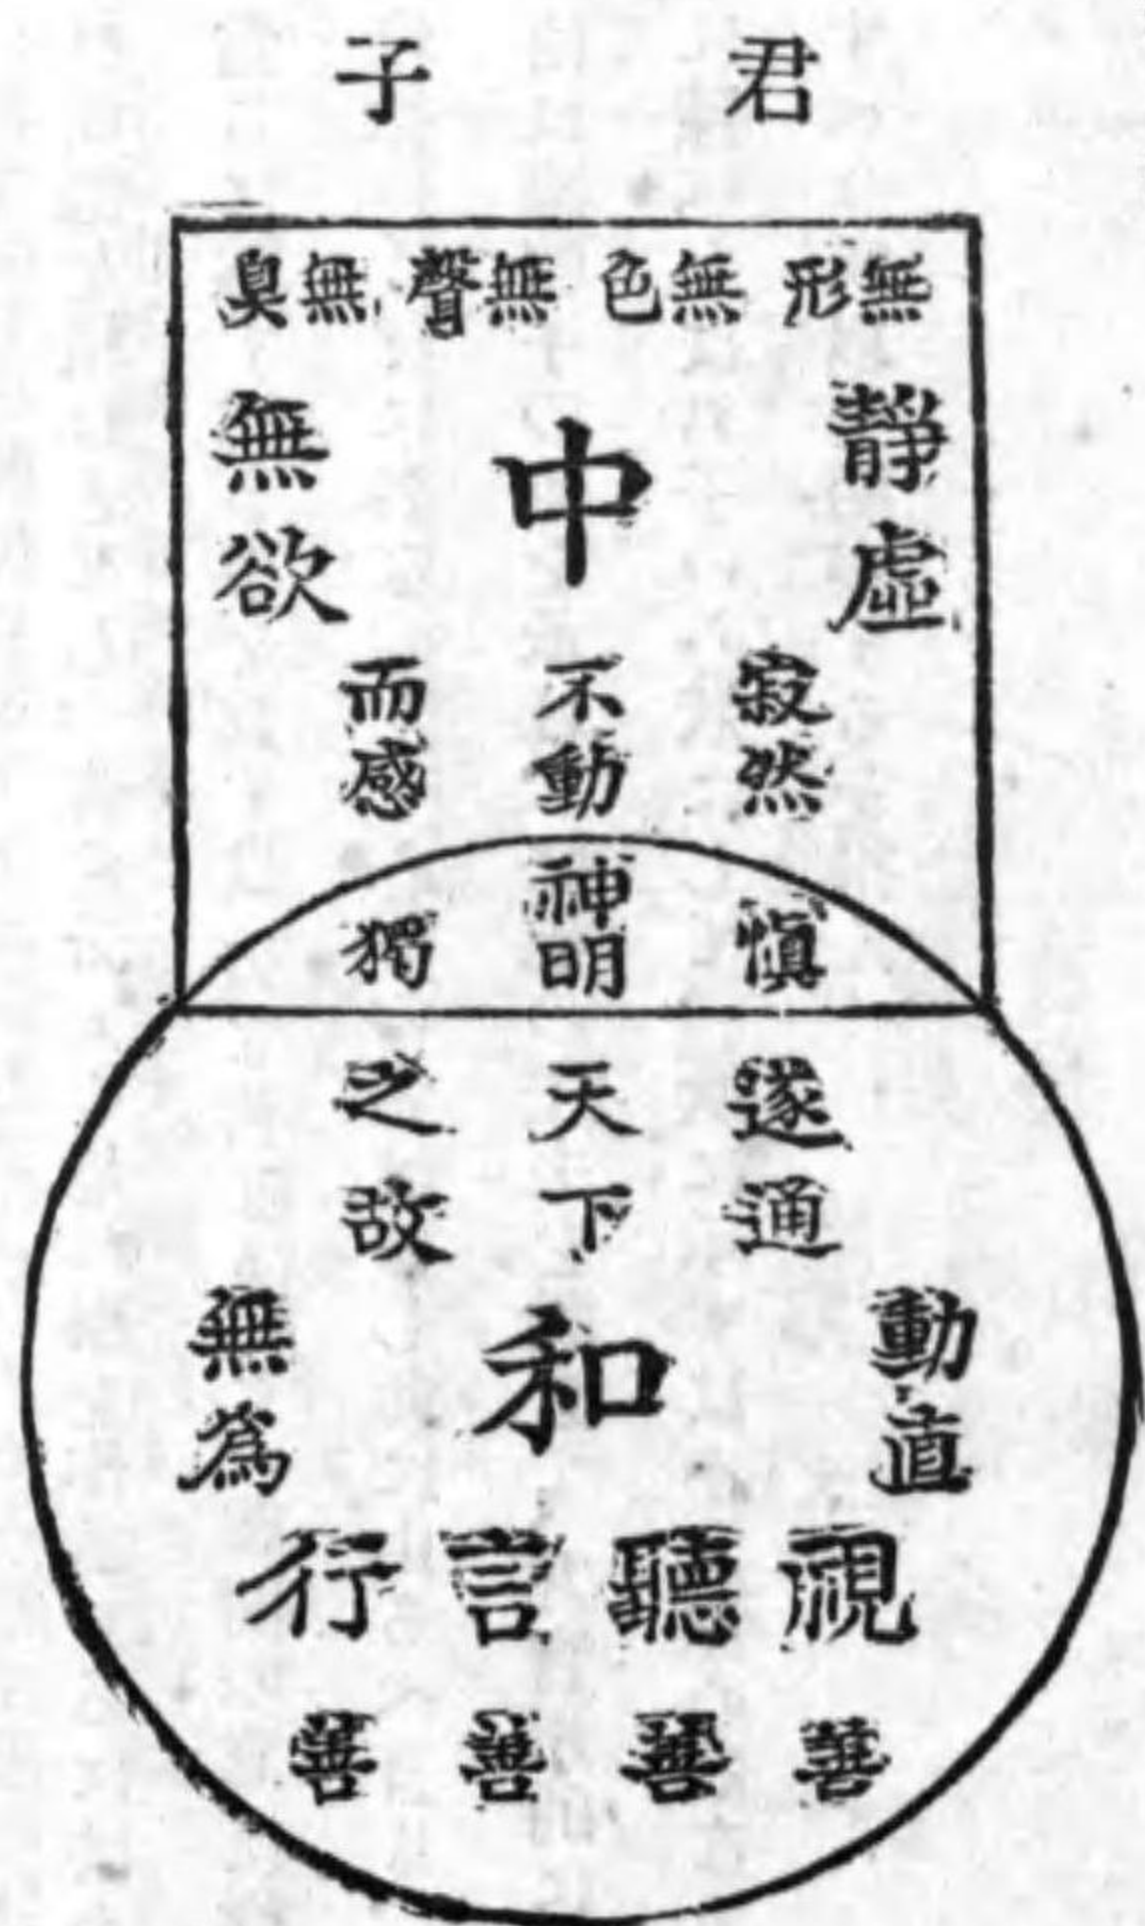 君子
無形 無色 無聲 無臭
靜虛
中
無欲
寂然
不動
而感
慎
神明
獨
遂通
天下
之故
動直
和
無為
視聽言行
善善善善